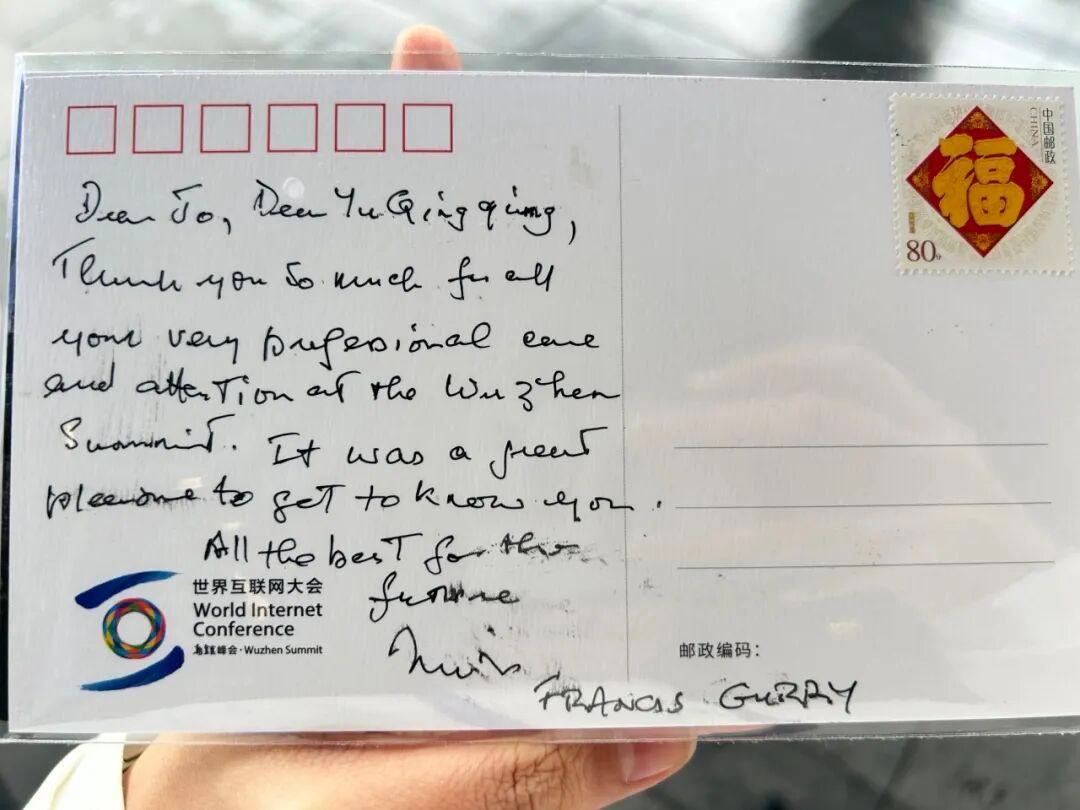 Dear Jo, Dear Yu Qingqing,
Thank you so much for all
your very professional care
and attention at the Wuzhen
Summit. It was a great
pleasure to get to know you.
All the best for the
future
FRANCIS GURRY
世界互联网大会
World Internet
Conference
乌镇峰会·Wuzhen Summit
中国邮政
CHINA
福
80分
邮政编码：